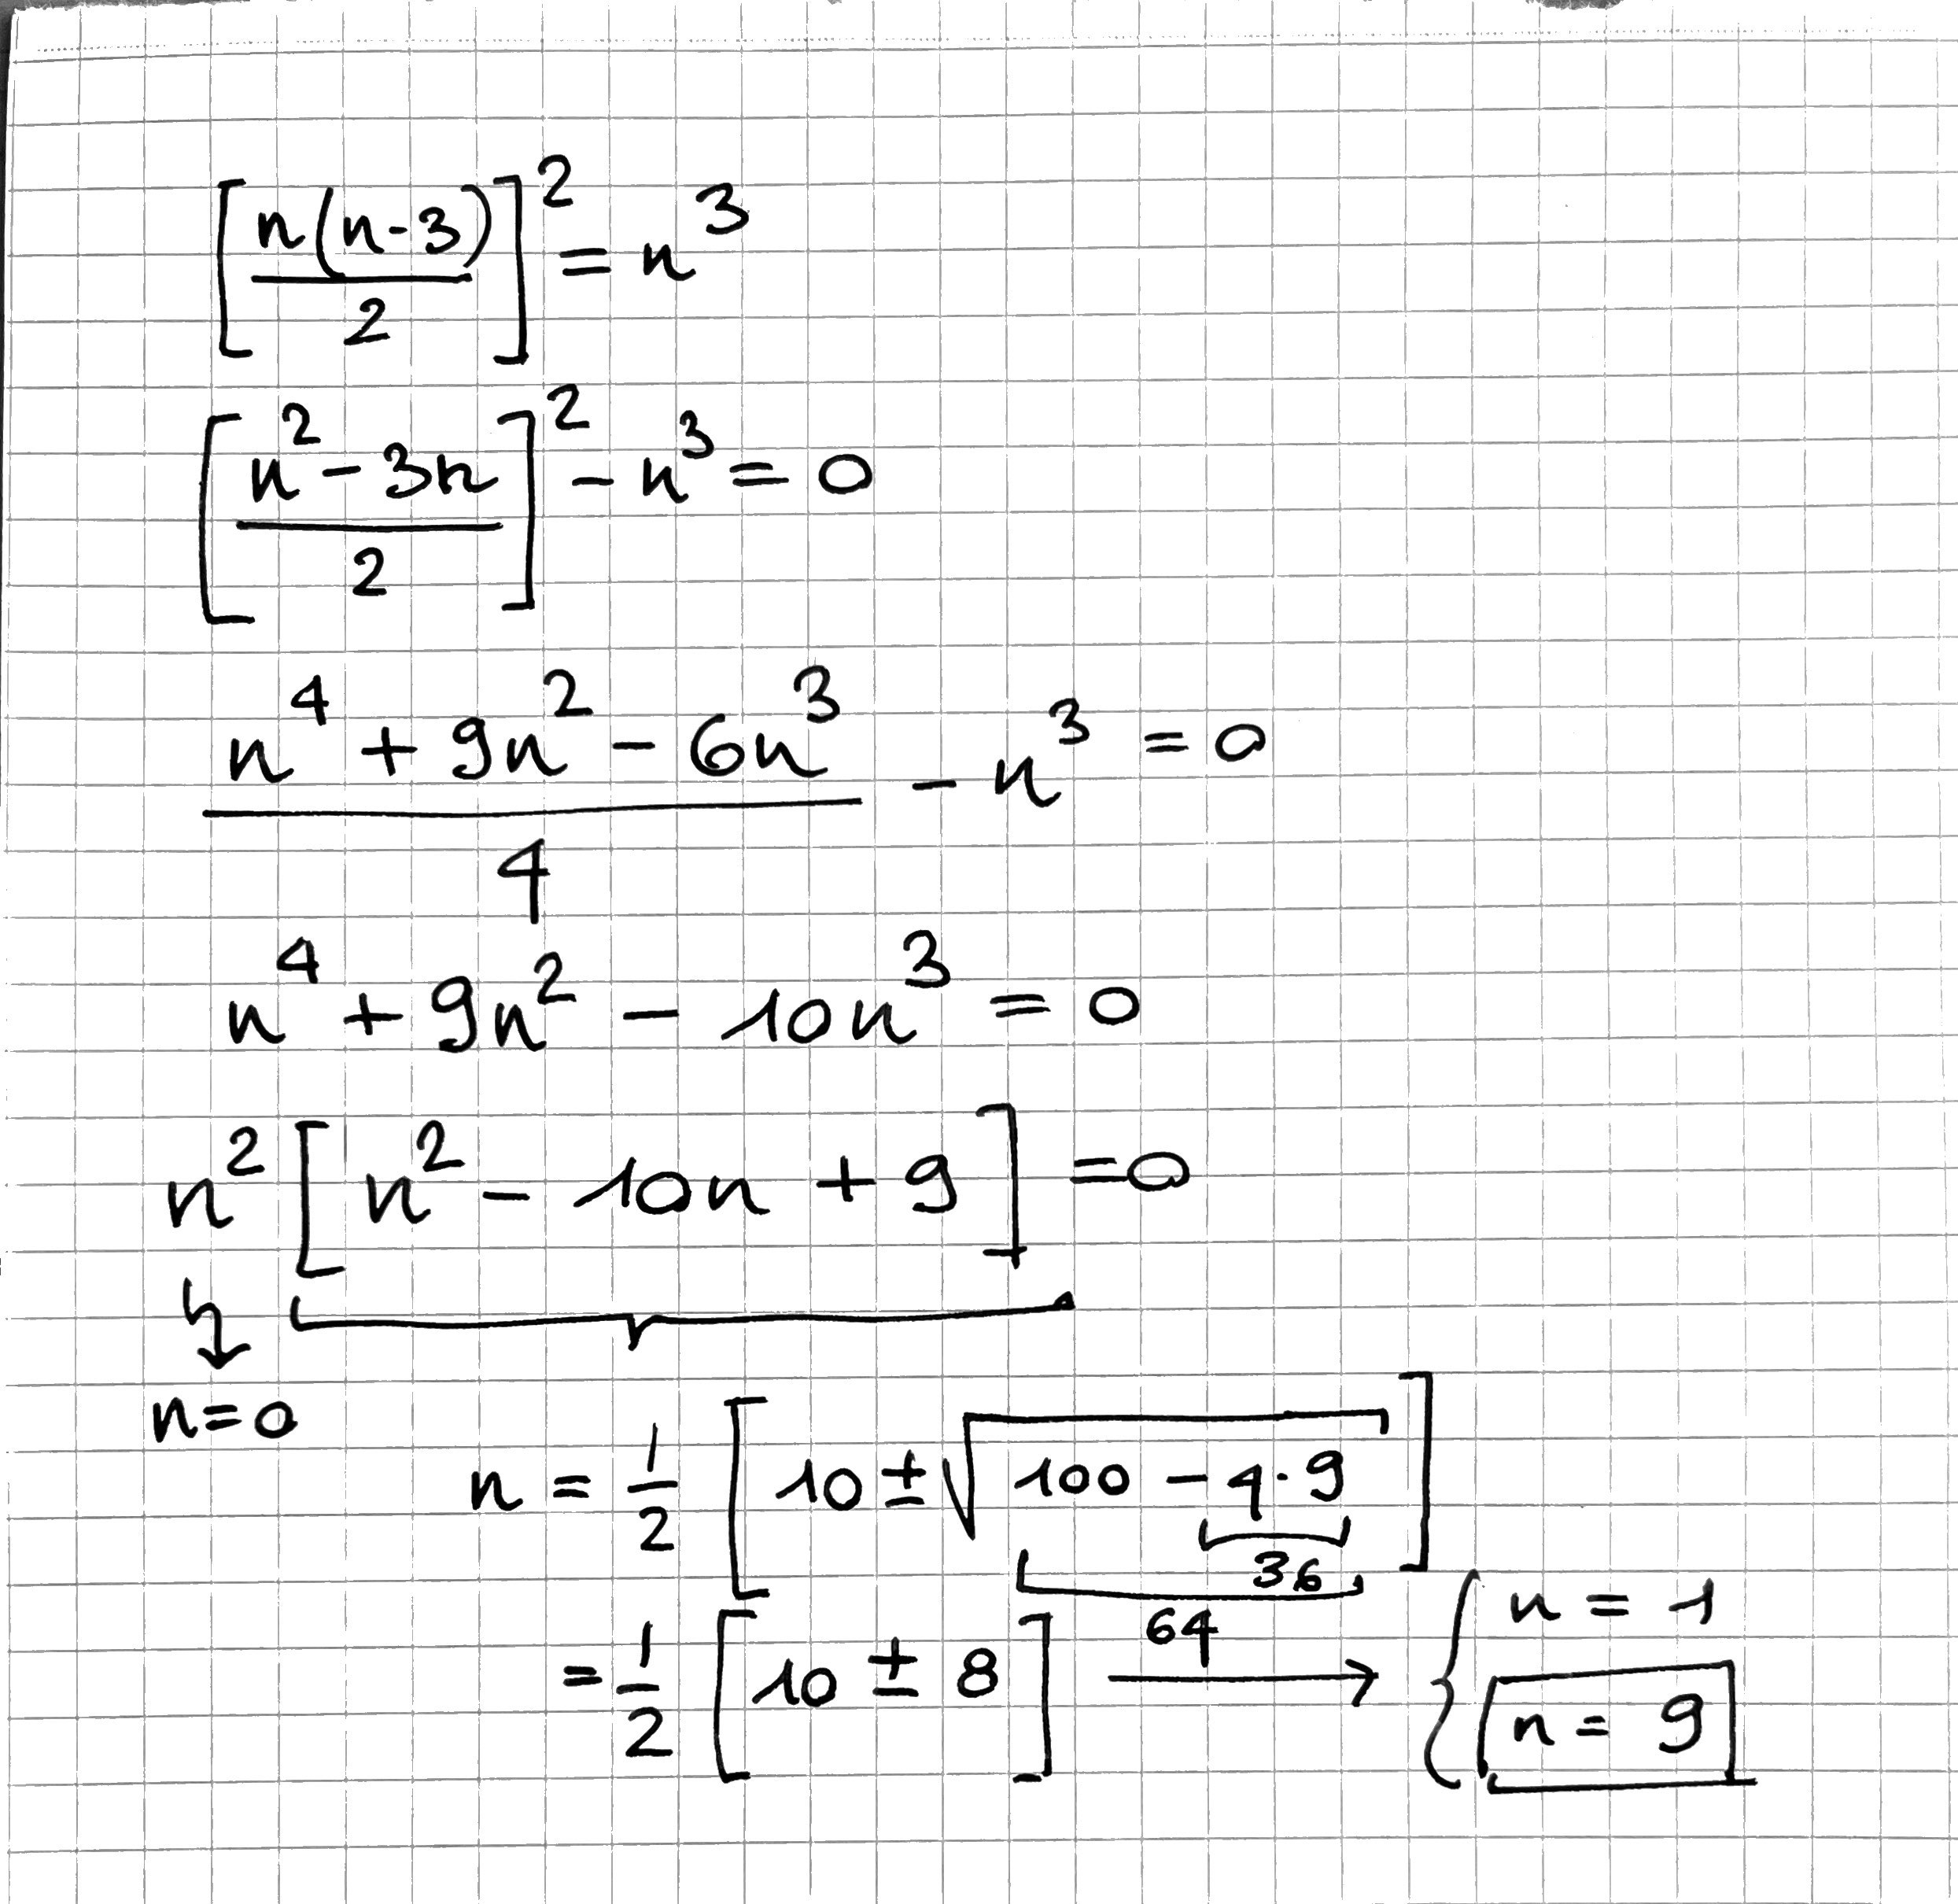 [n(n-3)/2]² = n³
[n²-3n/2]² - n³ = 0
n⁴ + 9n² - 6n³/4 - n³ = 0
n⁴ + 9n² - 10n³ = 0
n² [n² - 10n + 9] = 0
n=0
n = 1/2 [10 ± √100 - 4·9]
36
64
= 1/2 [10 ± 8] → { n = 1
n = 9